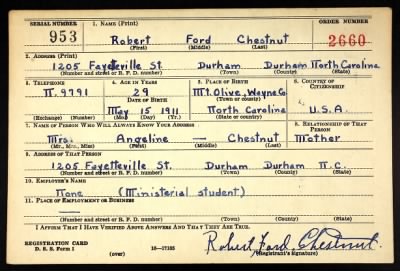 SERIAL NUMBER 1. NAME (Print) ORDER NUMBER
953 Robert Ford Chestnut 2660
(First) (Middle) (Last)
2. ADDRESS (Print)
1205 Fayetteville St. Durham Durham North Carolina
(Number and street or R. F. D. number) (Town) (County) (State)
3. TELEPHONE 4. AGE IN YEARS 5. PLACE OF BIRTH 6. COUNTRY OF CITIZENSHIP
N. 9791 29 Mt. Olive, Wayne Co.
DATE OF BIRTH (Town or county)
May 15 1911 North Carolina U.S.A.
(Exchange) (Number) (Mo.) (Day) (Yr.) (State or country)
7. NAME OF PERSON WHO WILL ALWAYS KNOW YOUR ADDRESS 8. RELATIONSHIP OF THAT PERSON
Mrs. Angeline — Chestnut Mother
(Mr., Mrs., Miss) (First) (Middle) (Last)
9. ADDRESS OF THAT PERSON
1205 Fayetteville St. Durham Durham N.C.
(Number and street or R. F. D. number) (Town) (County) (State)
10. EMPLOYER'S NAME
None (Ministerial student)
11. PLACE OF EMPLOYMENT OR BUSINESS
—
(Number and street or R. F. D. number) (Town) (County) (State)
I AFFIRM THAT I HAVE VERIFIED ABOVE ANSWERS AND THAT THEY ARE TRUE.
Robert Ford Chestnut
REGISTRATION CARD
D. S. S. Form 1 (over) 16—17105 (Registrant's signature)